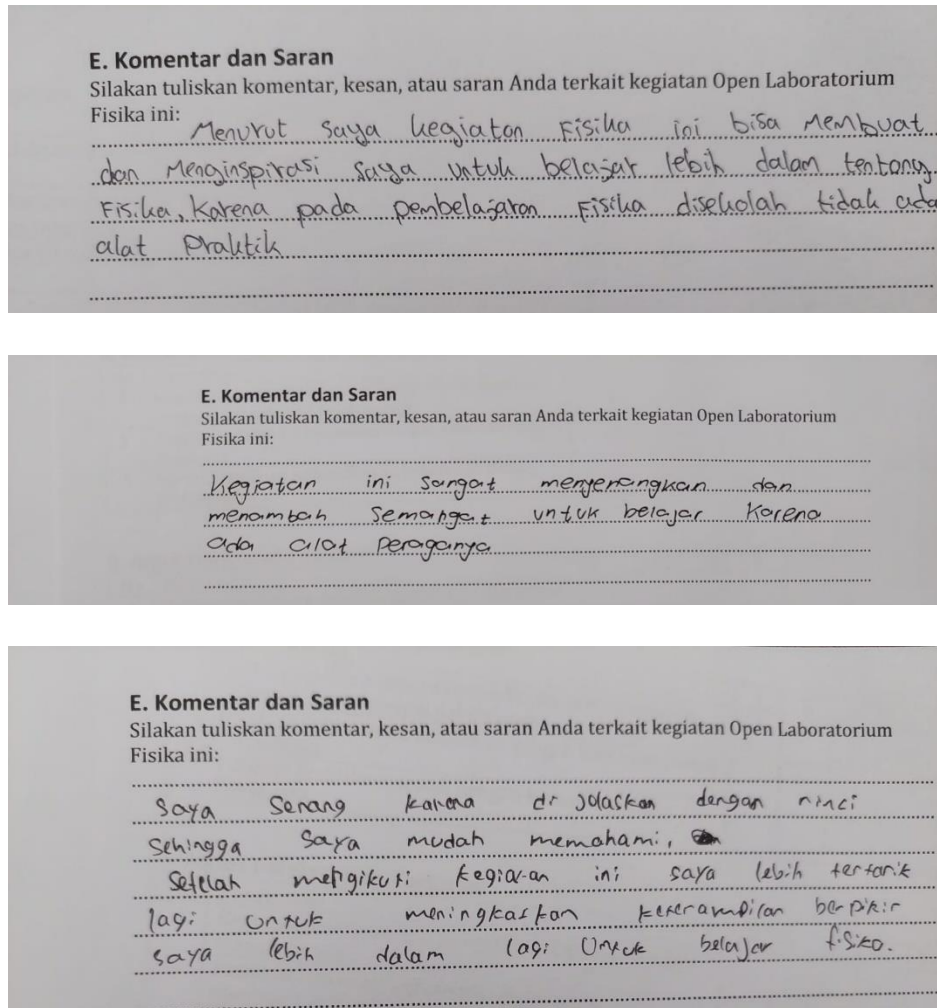 E. Komentar dan Saran
Silakan tuliskan komentar, kesan, atau saran Anda terkait kegiatan Open Laboratorium
Fisika ini:
Menurut saya kegiatan Fisika ini bisa Membuat
dan Menginspirasi saya untuk belajar lebih dalam tentang
Fisika, Karena pada pembelajaran Fisika disekolah tidak ada
alat Praktik
E. Komentar dan Saran
Silakan tuliskan komentar, kesan, atau saran Anda terkait kegiatan Open Laboratorium
Fisika ini:
Kegiatan ini sangat menyenangkan dan
menambah semangat untuk belajar Karena
ada alat peraganya
E. Komentar dan Saran
Silakan tuliskan komentar, kesan, atau saran Anda terkait kegiatan Open Laboratorium
Fisika ini:
Saya Senang karena di jelaskan dengan rinci
Sehingga Saya mudah memahami,
Setelah mengikuti kegiatan ini saya lebih tertarik
lagi untuk meningkatkan keterampilan berpikir
saya lebih dalam lagi Untuk belajar fisika.